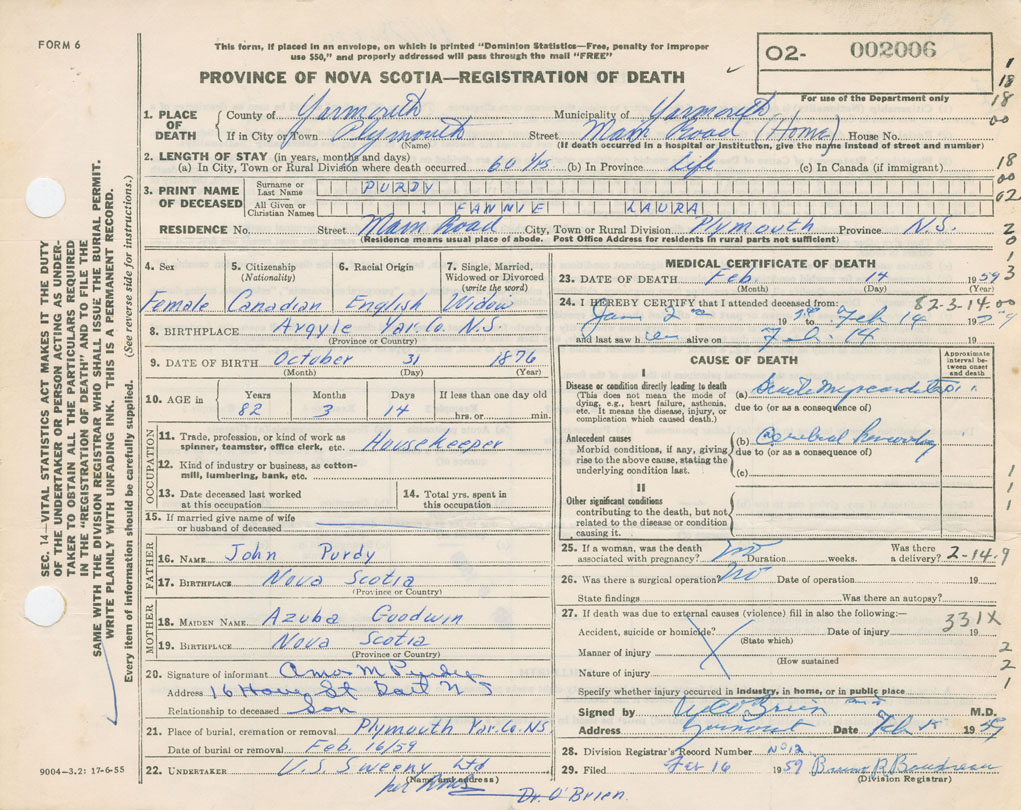 FORM 6
This form, if placed in an envelope, on which is printed "Dominion Statistics—Free, penalty for improper
use $50," and properly addressed will pass through the mail "FREE"
PROVINCE OF NOVA SCOTIA—REGISTRATION OF DEATH
O2- 002006
For use of the Department only
1
18
18
00
18
00
02
2
0
1
3
1. PLACE OF DEATH
County of Yarmouth Municipality of Yarmouth
If in City or Town Plymouth Street Main Road (Home) House No.
(Name) (If death occurred in a hospital or institution, give the name instead of street and number)
2. LENGTH OF STAY (in years, months and days)
(a) In City, Town or Rural Division where death occurred 60 yrs (b) In Province Life (c) In Canada (if immigrant)
3. PRINT NAME OF DECEASED
Surname or Last Name PURDY
All Given or Christian Names FANNIE LAURA
RESIDENCE No. Street Main Road City, Town or Rural Division Plymouth Province N.S.
(Residence means usual place of abode. Post Office Address for residents in rural parts not sufficient)
4. Sex 5. Citizenship (Nationality) 6. Racial Origin 7. Single, Married, Widowed or Divorced (write the word)
Female Canadian English Widow
8. BIRTHPLACE Argyle Yar. Co. N.S.
(Province or Country)
9. DATE OF BIRTH October 31 1876
(Month) (Day) (Year)
10. AGE in Years Months Days If less than one day old
82 3 14 hrs. or min.
OCCUPATION
11. Trade, profession, or kind of work as spinner, teamster, office clerk, etc. Housekeeper
12. Kind of industry or business, as cotton-mill, lumbering, bank, etc.
13. Date deceased last worked at this occupation
14. Total yrs. spent in this occupation
15. If married give name of wife or husband of deceased
FATHER
16. NAME John Purdy
17. BIRTHPLACE Nova Scotia
(Province or Country)
MOTHER
18. MAIDEN NAME Azuba Goodwin
19. BIRTHPLACE Nova Scotia
(Province or Country)
20. Signature of informant Amos M Purdy
Address 16 St Dart N S
Relationship to deceased Son
21. Place of burial, cremation or removal Plymouth Yar. Co. N.S.
Date of burial or removal Feb. 16/59
22. UNDERTAKER V.S. Sweeny Ltd
(Name and address)
per
Dr. O'Brien.
MEDICAL CERTIFICATE OF DEATH
23. DATE OF DEATH Feb. 14 1959
(Month) (Day) (Year)
24. I HEREBY CERTIFY that I attended deceased from: 82-3-14.00
Jan 2nd 19 to Feb 14 19
and last saw her alive on Feb. 14 19
CAUSE OF DEATH
Approximate interval between onset and death
I
Disease or condition directly leading to death
(This does not mean the mode of dying, e.g., heart failure, asthenia, etc. It means the disease, injury, or complication which caused death.)
(a) Acute Myocarditis
due to (or as a consequence of)
Antecedent causes
Morbid conditions, if any, giving rise to the above cause, stating the underlying condition last.
(b) Cerebral
due to (or as a consequence of)
(c)
II
Other significant conditions
contributing to the death, but not related to the disease or condition causing it.
1
1
1
25. If a woman, was the death associated with pregnancy? no Duration weeks. Was there a delivery? 2-14.9
26. Was there a surgical operation no Date of operation 19
State findings Was there an autopsy?
27. If death was due to external causes (violence) fill in also the following:—
331X
Accident, suicide or homicide? Date of injury 19
(State which)
Manner of injury
(How sustained
Nature of injury
2
2
1
Specify whether injury occurred in industry, in home, or in public place
Signed by O'Brien M.D.
Address Yarmouth Date Feb 1959
28. Division Registrar's Record Number No 12
29. Filed Feb 16 1959 Bruno R Boudreau
(Division Registrar)
SEC. 14—VITAL STATISTICS ACT MAKES IT THE DUTY
OF THE UNDERTAKER OR PERSON ACTING AS UNDER-
TAKER TO OBTAIN ALL THE PARTICULARS REQUIRED
IN THE "REGISTRATION OF DEATH" AND TO FILE THE
SAME WITH THE DIVISION REGISTRAR WHO SHALL ISSUE THE BURIAL PERMIT.
WRITE PLAINLY WITH UNFADING INK. THIS IS A PERMANENT RECORD.
Every item of information should be carefully supplied. (See reverse side for instructions.)
9004—3.2: 17-6-55